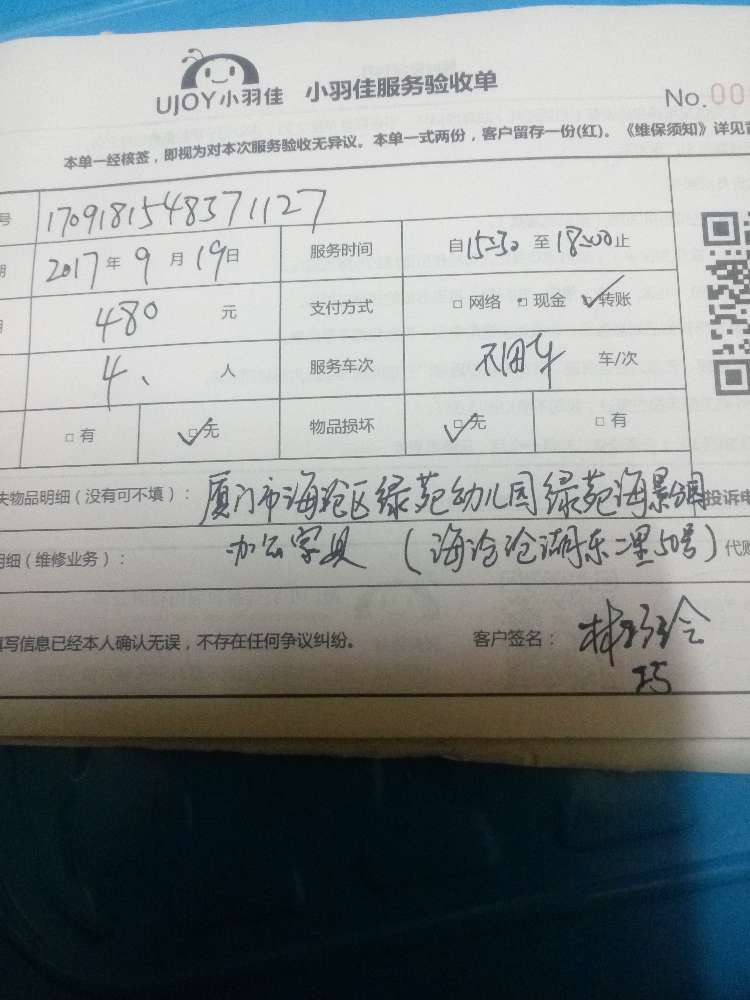 UJOY小羽佳 小羽佳服务验收单
No.00
本单一经核签，即视为对本次服务验收无异议。本单一式两份，客户留存一份(红)。《维保须知》详见
号 1709181548371127
期 2017年9月19日 服务时间 自15:30至18:00止
480 元 支付方式 □网络 □现金 ☑转账
4、 人 服务车次 不用车 车/次
□有 ☑无 物品损坏 ☑无 □有
失物品明细（没有可不填）： 厦门市海沧区绿苑幼儿园绿苑海景分园 投诉电
明细（维修业务）： 办公家具（海沧沧湖东二里50号） 代购
填写信息已经本人确认无误，不存在任何争议纠纷。 客户签名：